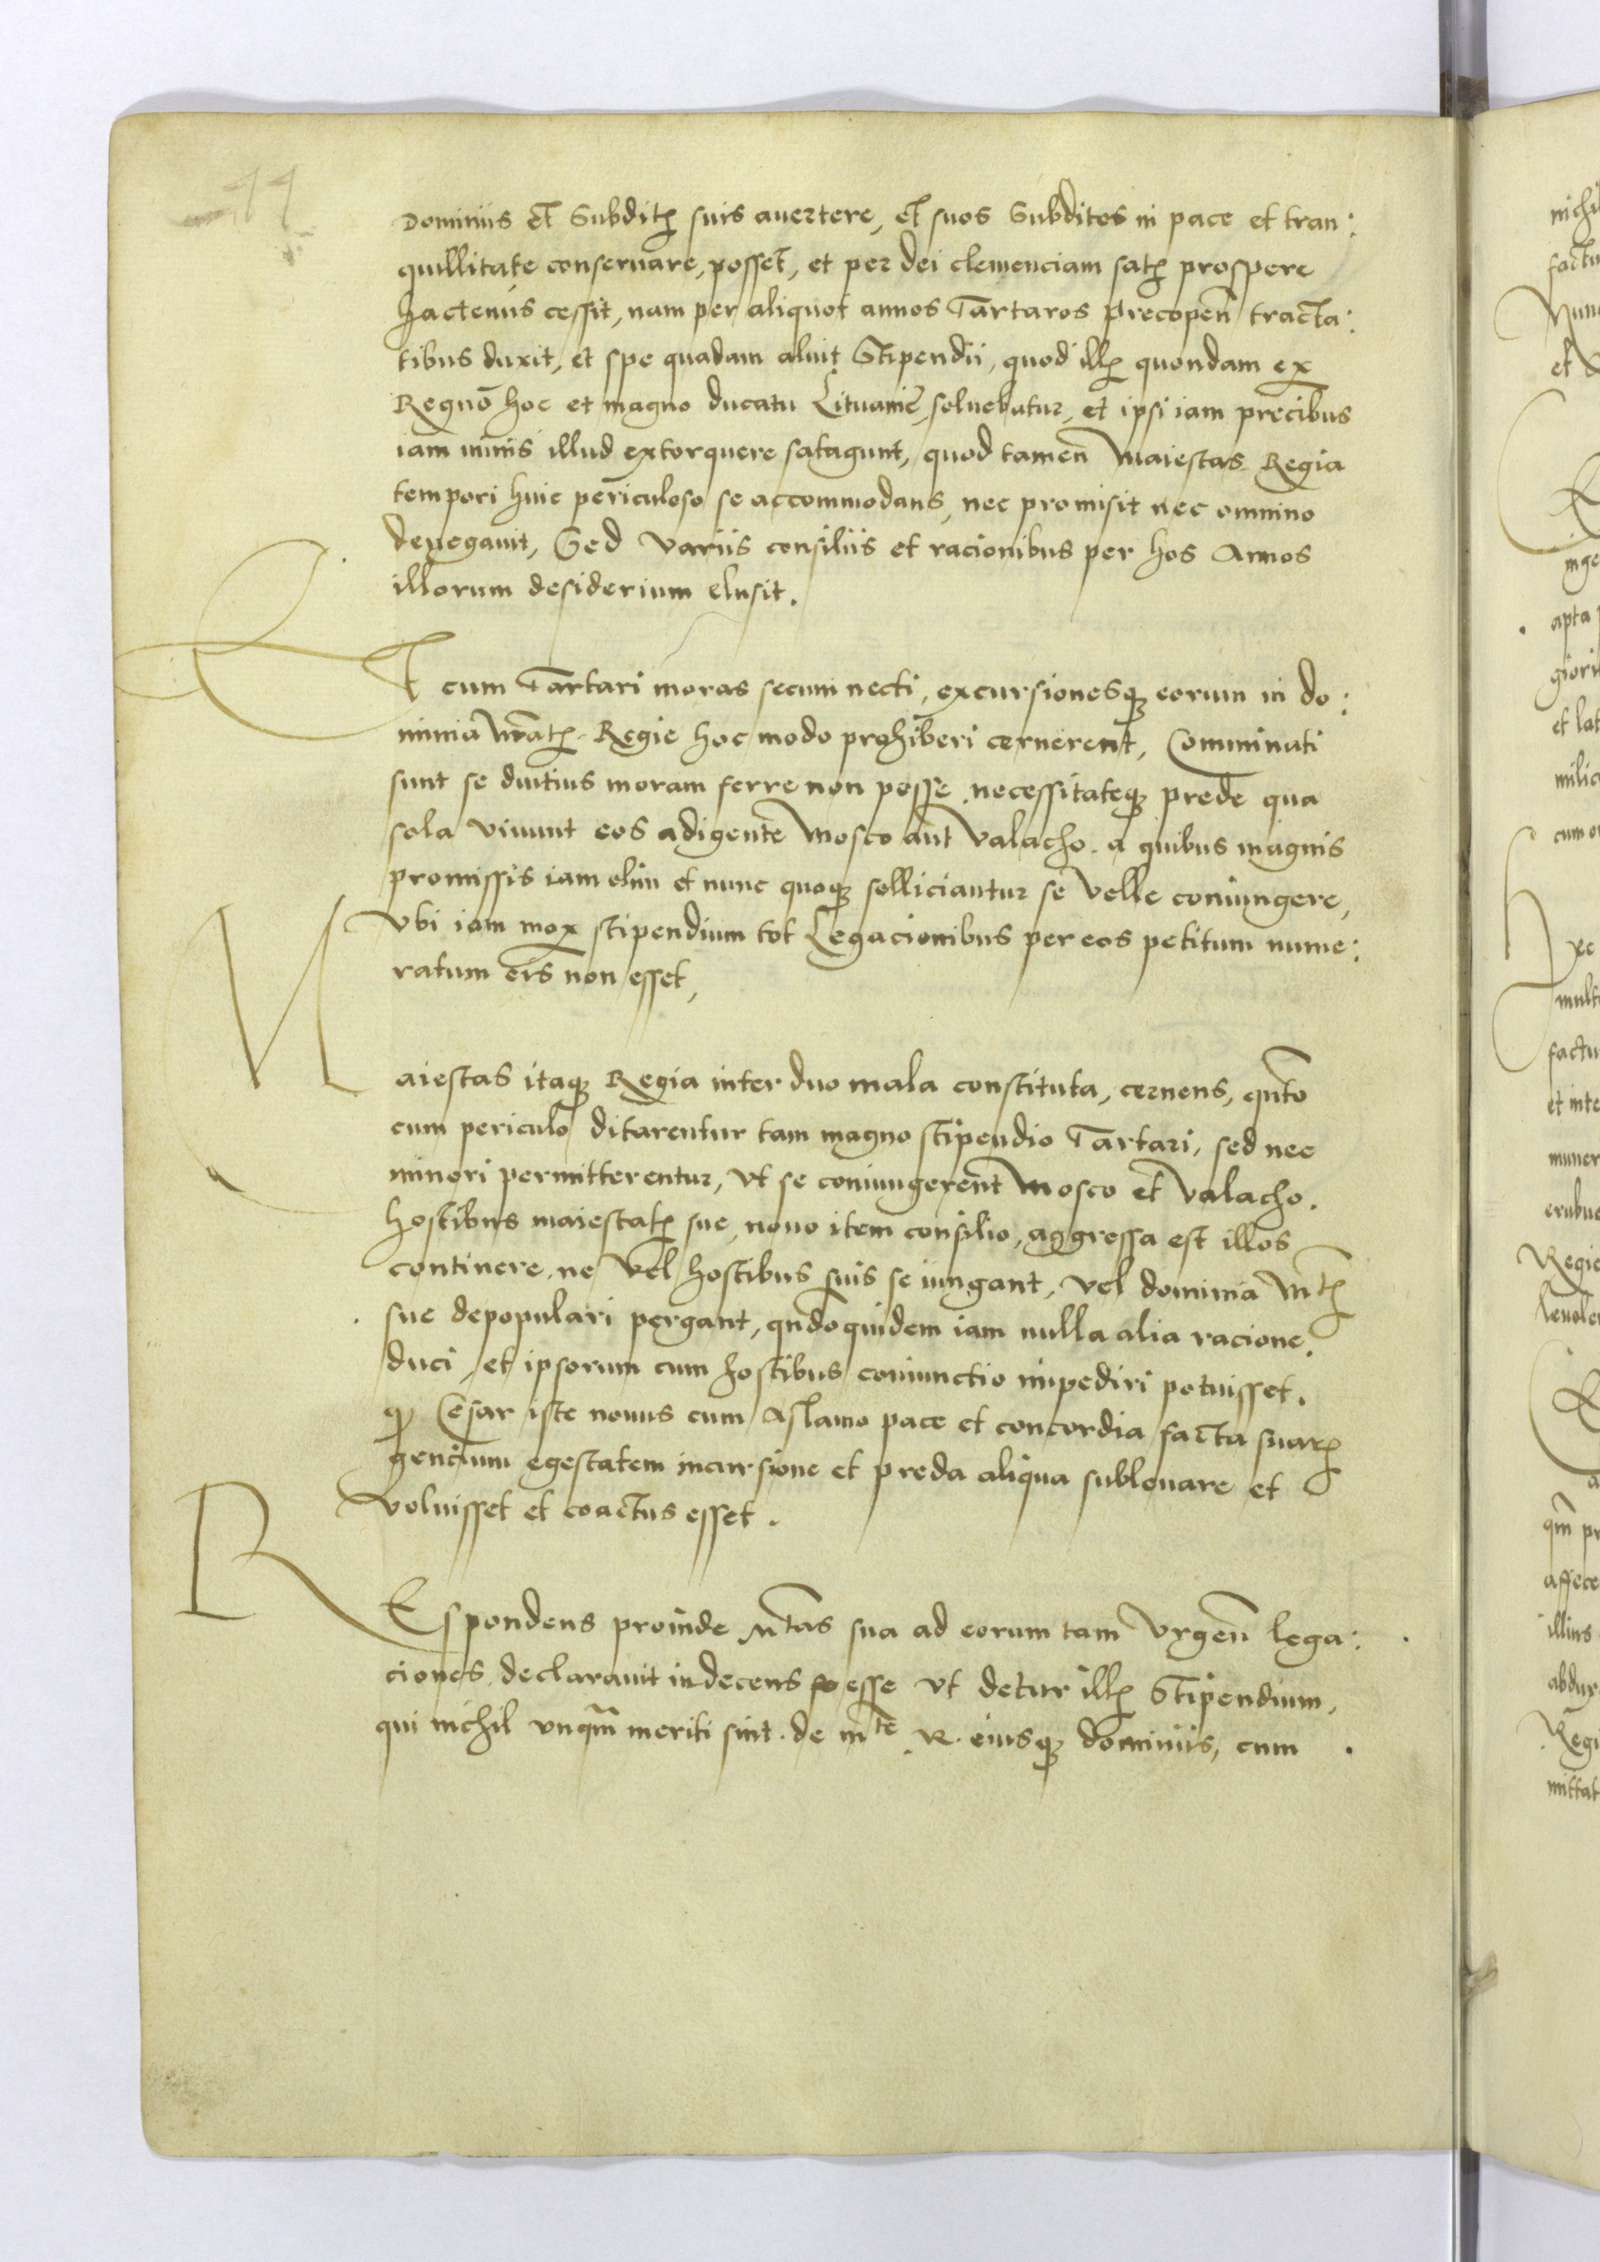 11
Dominiis et Subditꝭ suis avertere, et suos Subditos in pace et tran:
quillitate conservare, posset, et per dei clemenciam satꝭ prospere
hactenus cessit, nam per aliquot annos Tartaros precopen̄ tracta:
tibus duxit, et spe quadam aluit Stipendii, quod illꝭ quondam ex
Regno hoc et magno ducatu Lituanie, soluebatur, et ipsi iam precibus
iam minis illud extorquere satagunt, quod tamen Maiestas Regia
tempori huic periculoso se accommodans, nec promisit nec omnino
denegauit, Sed variis consiliis et racionibus per hos Annos
illorum desiderium elusit.
Et cum Tartari moras secum necti, excursionesqꝫ eorum in do:
minia Mtatꝭ Regie hoc modo prohiberi cernerent, Comminati
sunt se diutius moram ferre non posse necessitateqꝫ prede qua
sola viuunt eos adigente Mosco aut Valacho. a quibus magnis
promissis iam olim et nunc quoqꝫ solliciantur se velle coniungere,
Vbi iam mox stipendium tot Legacionibus per eos petitum nume:
ratum eis non esset,
Maiestas itaqꝫ Regia inter duo mala constituta, cernens, qn̄to
cum periculo ditarentur tam magno stipendio Tartari, sed nec
minori permitterentur, vt se coniungerent Mosco et Valacho.
hostibus maiestatꝭ sue, nouo item consilio, aggressa est illos
continere, ne vel hostibus suis se iungant, vel dominia Mtꝭ
sue depopulari pergant, qn̄doquidem iam nulla alia racione
duci, et ipsorum cum hostibus coniunctio impediri potuisset.
qꝫ Cesar iste nouus cum Aslamo pace et concordia facta suarꝝ
gencium egestatem incursione et preda aliqua subleuare et
voluisset et coactus esset.
REspondens proinde Mtas sua ad eorum tam vrgen̄ lega:
ciones declarauit indecens esse vt detur illꝭ Stipendium,
qui nichil vnqm̄ meriti sint de mte R. eiusqꝫ dominiis, cum